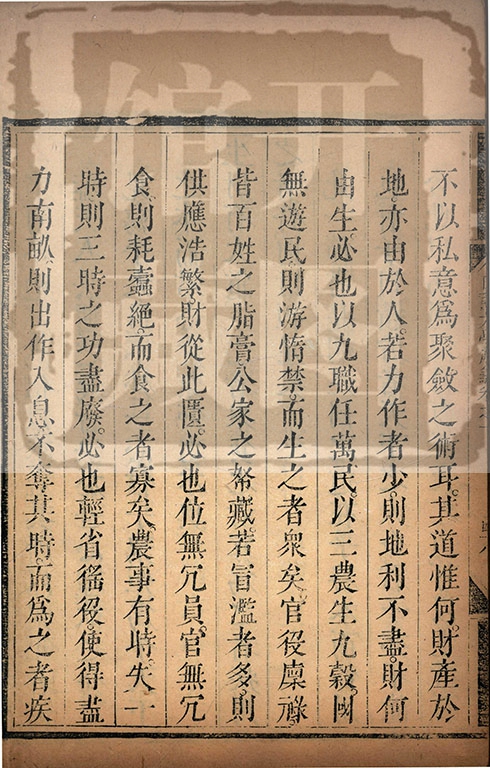 不以私意爲聚斂之術耳其道惟何財產於
地亦由於人若力作者少則地利不盡財何
由生必也以九職任萬民以三農生九穀國
無遊民則游惰禁而生之者衆矣官役廩祿
皆百姓之脂膏公家之帑藏若冒濫者多則
供應浩繁財從此匱必也位無冗員官無冗
食則耗蠹絕而食之者寡矣農事有時失一
時則三時之功盡廢必也輕省徭役使得盡
力南畝則出作入息不奪其時而爲之者疾